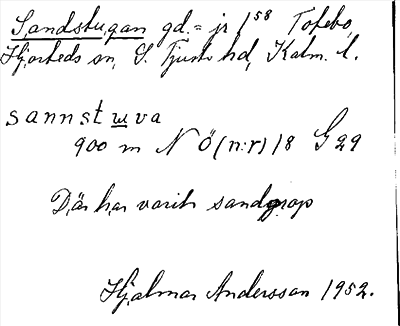 Sandstugan gd.= jr 1⁵⁸ Totebo,
Hjorteds sn, S. Tjusts hd, Kalm. l.
sannstwva
900 m N Ö (n:r) 18 G 29
Där har varit sandgrop
Hjalmar Andersson 1952.